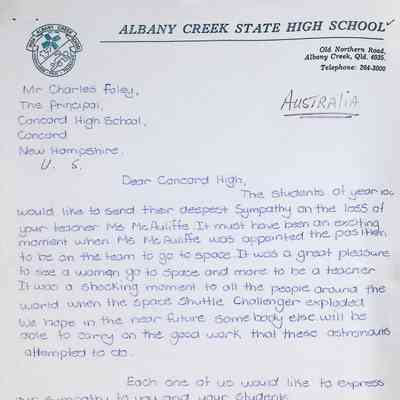 ALBANY CREEK STATE HIGH SCHOOL
Old Northern Road,
Albany Creek, Qld. 4035.
Telephone: 264-3000
Mr Charles Foley,
The Principal,
Concord High School,
Concord
New Hampshire.
U. S.
AUSTRALIA
Dear Concord High,
The students of year 10c
would like to send their deepest sympathy on the loss of
your teacher Ms McAuliffe. It must have been an exciting
moment when Ms McAuliffe was appointed the position
to be on the team to go to space. It was a great pleasure
to see a women go to space and more to be a teacher
It was a shocking moment to all the people around the
world when the space shuttle Challenger exploded.
We hope in the near future somebody else will be
able to carry on the good work that these astronauts
attempted to do.
Each one of us would like to express
our sympathy to you and your students